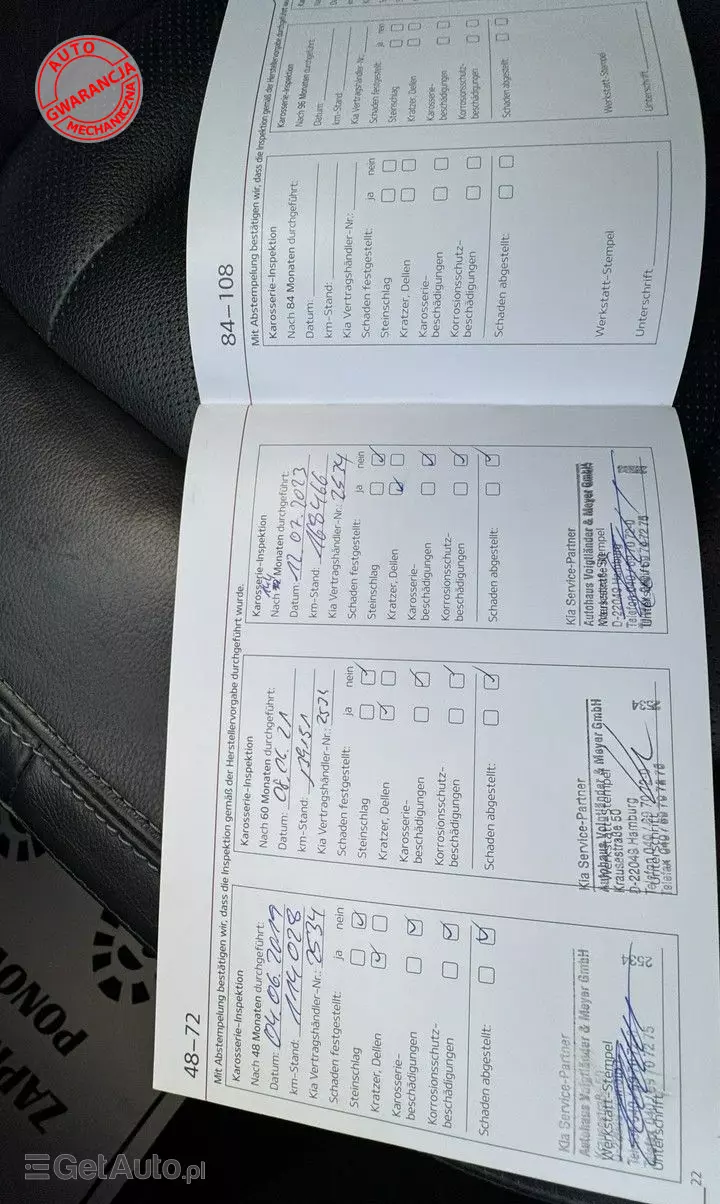 AUTO
GWARANCJA
MECHANICZNA
48–72
Mit Abstempelung bestätigen wir, dass die Inspektion gemäß der Herstellervorgabe durchgeführt wurde.
Karosserie-Inspektion
Nach 48 Monaten durchgeführt:
Datum: 04.06.2019
km-Stand: 114 028
Kia Vertragshändler-Nr.: 2534
Schaden festgestellt: ja nein
Steinschlag
Kratzer, Dellen
Karosserie-
beschädigungen
Korrosionsschutz-
beschädigungen
Schaden abgestellt:
Kia Service-Partner
Autohaus Voigtländer & Meyer GmbH
Werkstatt-Stempel
Unterschrift
2534
Karosserie-Inspektion
Nach 60 Monaten durchgeführt:
Datum:
km-Stand: 139151
Kia Vertragshändler-Nr.: 2534
Schaden festgestellt: ja nein
Steinschlag
Kratzer, Dellen
Karosserie-
beschädigungen
Korrosionsschutz-
beschädigungen
Schaden abgestellt:
Kia Service-Partner
Autohaus Voigtländer & Meyer GmbH
Werkstatt-Stempel
Krausestraße 50
D-22049 Hamburg
Unterschrift
Karosserie-Inspektion
Nach Monaten durchgeführt:
Datum: 12.07.2023
km-Stand: 168466
Kia Vertragshändler-Nr.: 2534
Schaden festgestellt: ja nein
Steinschlag
Kratzer, Dellen
Karosserie-
beschädigungen
Korrosionsschutz-
beschädigungen
Schaden abgestellt:
Kia Service-Partner
Autohaus Voigtländer & Meyer GmbH
Werkstatt-Stempel
D-22049 Hamburg
Unterschrift
22
84–108
Mit Abstempelung bestätigen wir, dass die Inspektion gemäß der Herstellervorgabe durchgeführt
Karosserie-Inspektion
Nach 84 Monaten durchgeführt:
Datum:
km-Stand:
Kia Vertragshändler-Nr.:
Schaden festgestellt: ja nein
Steinschlag
Kratzer, Dellen
Karosserie-
beschädigungen
Korrosionsschutz-
beschädigungen
Schaden abgestellt:
Werkstatt-Stempel
Unterschrift
Karosserie-Inspektion
Nach 96 Monaten durchgeführt:
Datum:
km-Stand:
Kia Vertragshändler-Nr.:
Schaden festgestellt: ja nein
Steinschlag
Kratzer, Dellen
Karosserie-
beschädigungen
Korrosionsschutz-
beschädigungen
Schaden abgestellt:
Werkstatt-Stempel
Unterschrift
GetAuto.pl